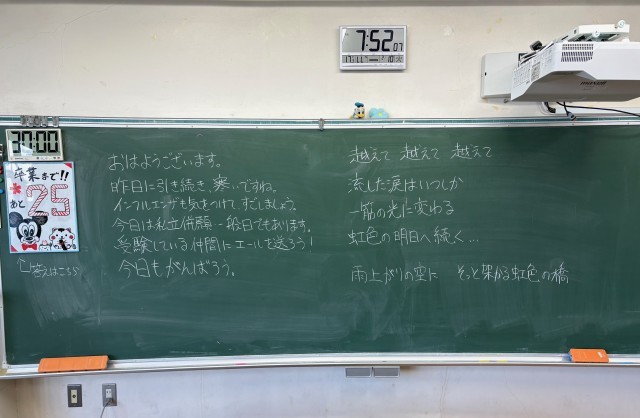 7:52 07
30:00
卒業まで!!
あと25
↑答えはこちら
おはようございます。
昨日に引き続き、寒いですね。
インフルエンザも気をつけてすごしましょう。
今日は私立併願、一般日でもあります。
受験している仲間にエールを送ろう!
今日もがんばろう。
越えて 越えて 越えて
流した涙はいつしか
一筋の光に変わる
虹色の明日へ続く…
雨上がりの空に そっと架かる虹色の橋